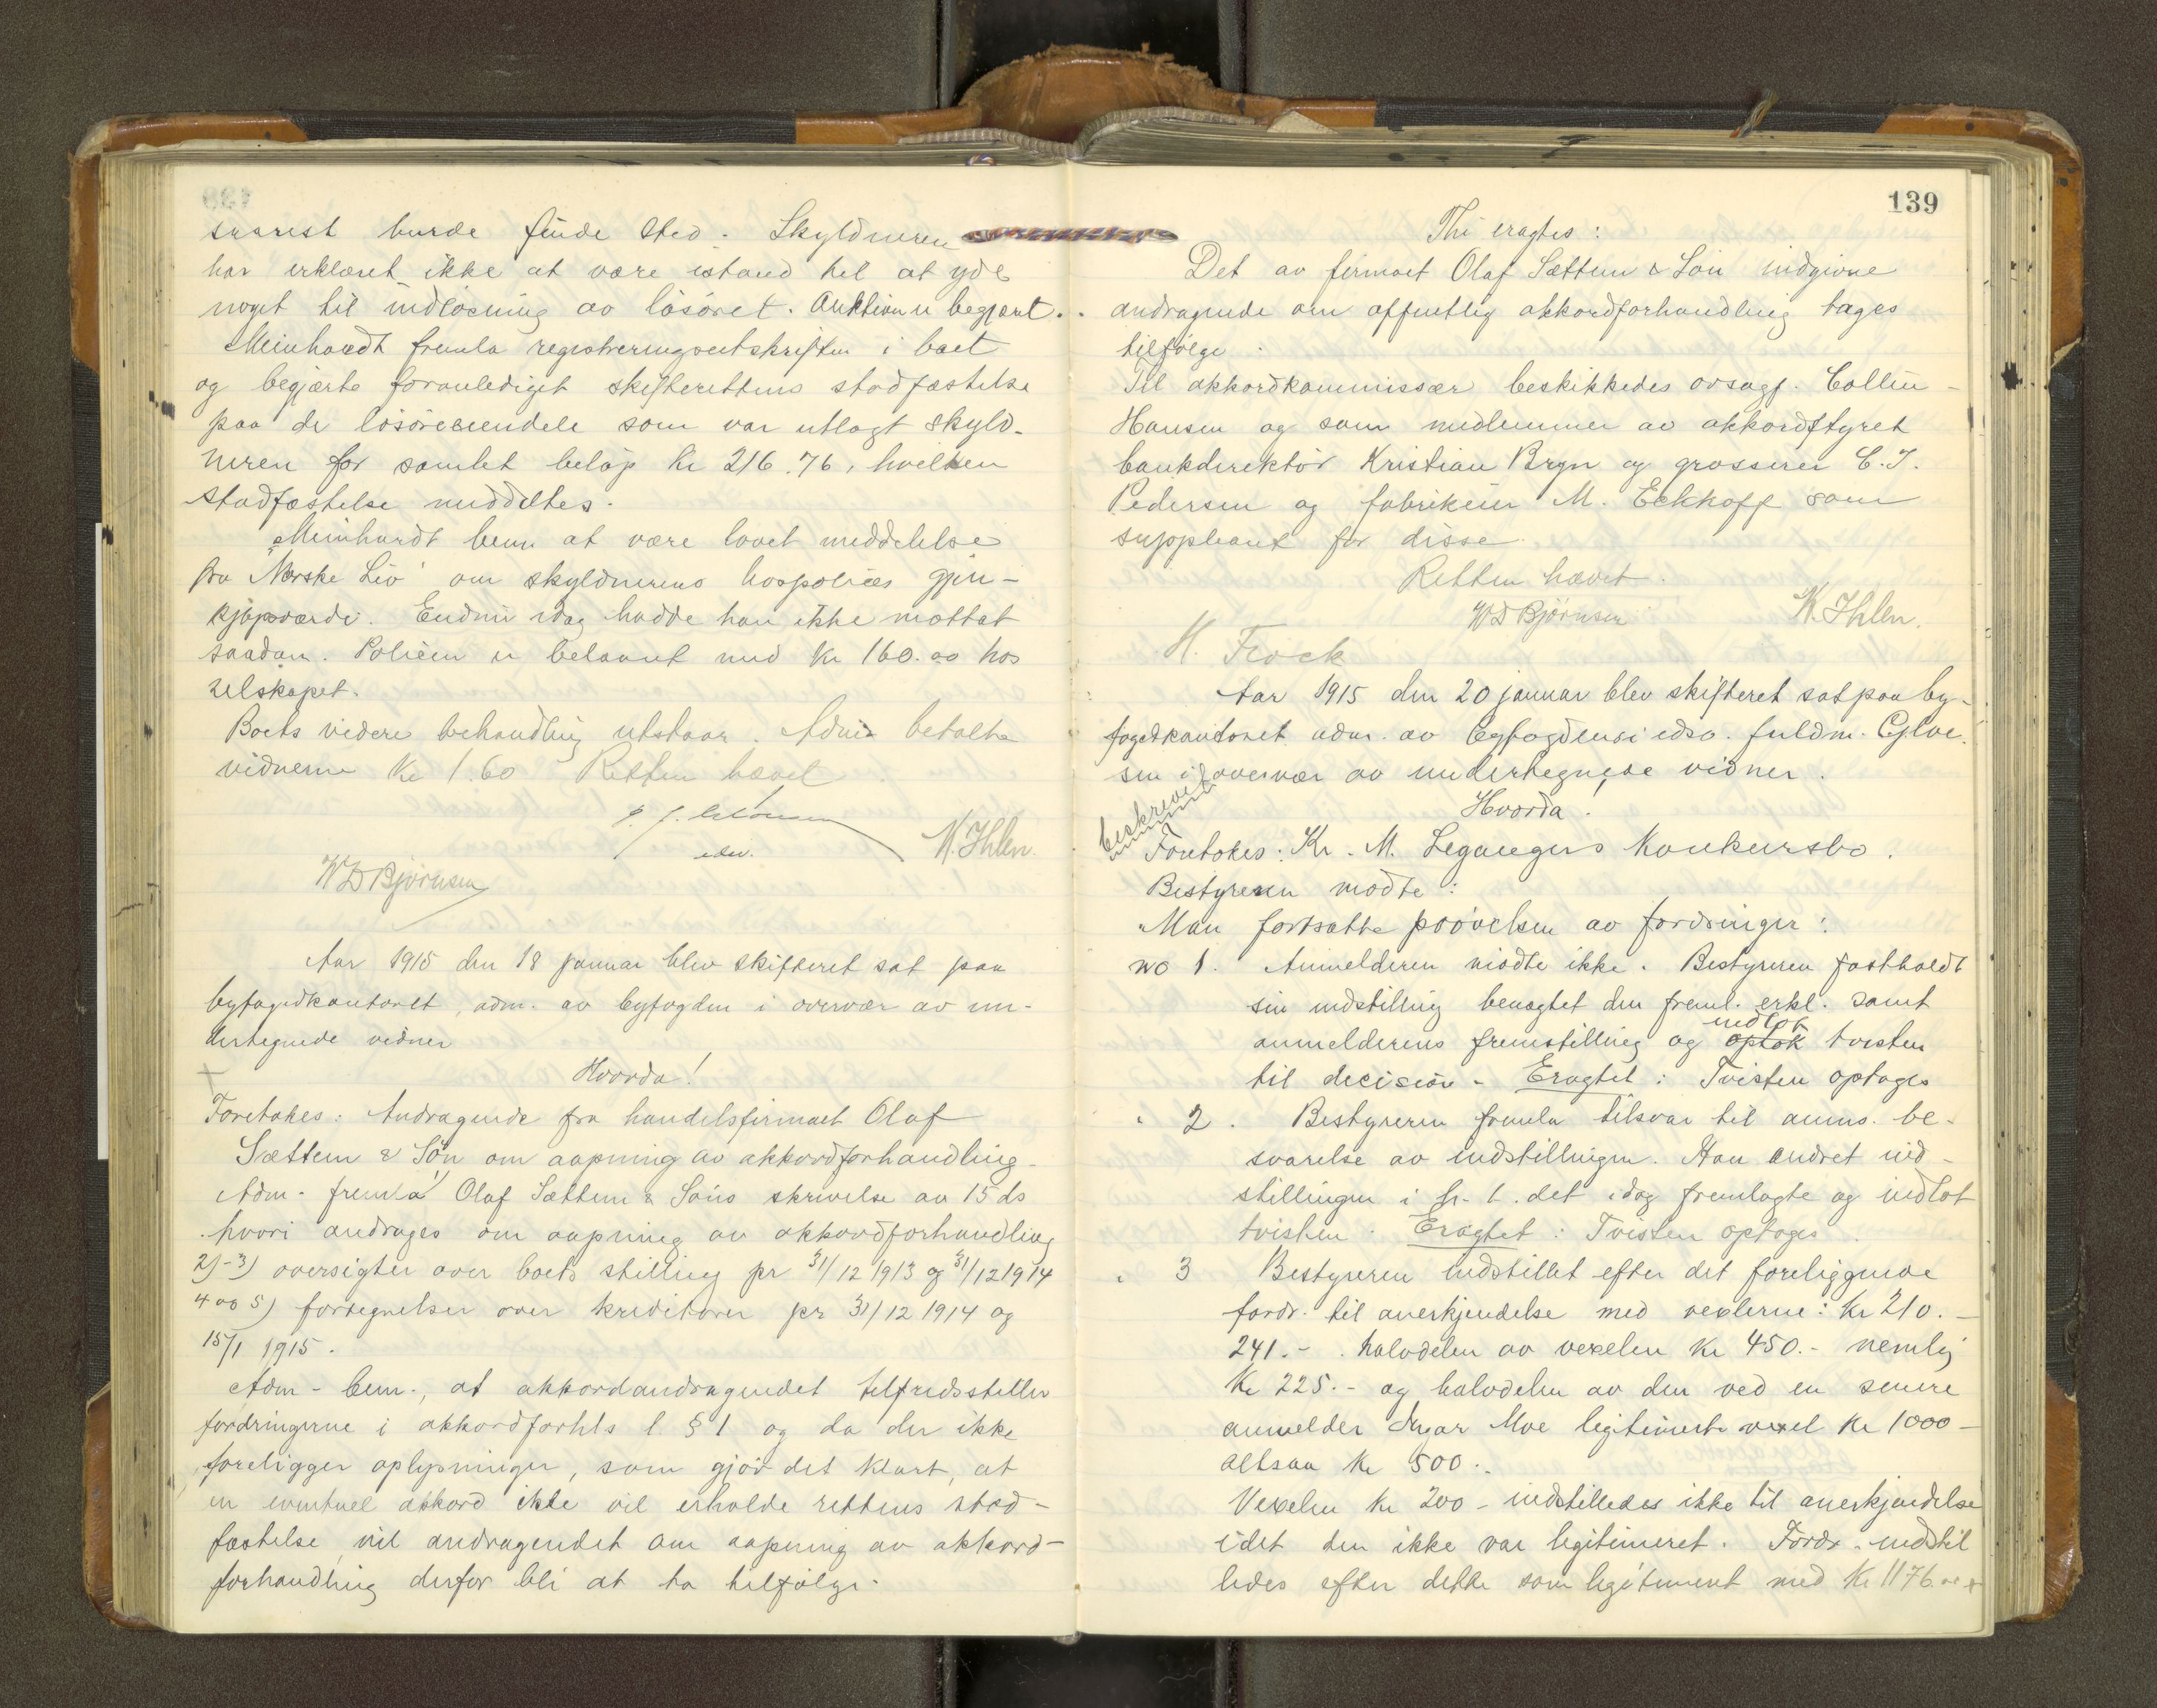 snarest burde finde sted. Skyldneren
har erklæret ikke at være istand til at yde
noget til indløsning av løsøret. Auktion er begjært.
Meinhardt fremla registreringsutskriften i boet
og begjærte foranlediget skifterettens stadfæstelse
paa de løsøreeiendele som var utlagt skyld-
neren for samlet beløp kr 216.76, hvilken
stadfæstelse meddeltes.
Meinhardt bem at være lovet meddelelse
fra "Norske Liv" om skyldnerens livspolices gjen-
kjøpsværdi. Endnu idag hadde han ikke mottat
saadan. Policen er belaant med kr 160.00 hos
selskapet.
Boets videre behandling utstaar. Adm betalte
vidnerne kr 1.60 Retten hævet
edsv.
K. Ihlen.
W D Bjørnsen
Aar 1915 den 18 januar blev skifteret sat paa
byfogedkontoret, adm. av byfogden i overvær av un-
dertegnede vidner
Hvorda!
Foretokes: Andragende fra handelsfirmaet Olaf
Sættem & Søn om aapning av akkordforhandling-
Adm. fremla 1/ Olaf Sættem & Søns skrivelse av 15 ds
hvori andrages om aapning av akkordforhandling
2)-3) oversigter over boets stilling pr 31/12 1913 og 31/12 1914
4 og 5) fortegnelser over kreditorer pr 31/12 1914 og
15/1 1915.
Adm- bem., at akkordandragendet tilfredsstiller
fordringerne i akkordforhls l. § 1 og da der ikke
foreligger oplysninger, som gjør det klart, at
en eventuel akkord ikke vil erholde rettens stad-
fæstelse, vil andragendet om aapning av akkord-
forhandling derfor bli at ta tilfølge.
139
Thi eragtes:
Det av firmaet Olaf Sættem & Søn indgivne
andragende om offentlig akkordforhandling tages
tilfølge.
Til akkordkommissær beskikkedes ovsagf. Collin-
Hansen og som medlemmer av akkordstyret
bankdirektør Kristian Bryn og grosserer C. J.
Pedersen og fabrikeier M. Eckhoff som
suppleant for disse.
Retten hævet.
W D Bjørnsen K. Ihlen.
H. Frock
Aar 1915 den 20 januar blev skifteret sat paa by-
fogedkontoret adm. av byfogdens i edsv. fuldm.
sen i overvær av undertegnede vidner.
Hvorda!
beskrevet
Foretokes: Kr. M. Legangers konkursbo.
Bestyreren mødte:
Man fortsatte prøvelsen av fordringer:
no 1. Anmelderen mødte ikke. Bestyreren fastholdt
sin indstilling benegtet den freml. erkl. samt
anmelderens fremstilling og optok indlot tvisten
til decision - Eragtet: Tvisten optages
" 2. Bestyreren fremla tilsvar til anms. be-
svarelse av indstillingen. Han endret ind-
stillingen i h. t. det idag fremlagte og indlot
tvisten. Eragtet: Tvisten optages.
" 3 Bestyreren indstillet efter det foreliggende
fordr. til anerkjendelse med vexlerne: kr 210.-
241.- halvdelen av vexelen kr 450.- nemlig
kr 225.- og halvdelen av den ved en senere
anmelder Ingar Moe legitimerte vexel kr 1000-
altsaa kr 500.-
Vexelen kr 200 - indstilledes ikke til anerkjendelse
idet den ikke var legitimeret. Fordr. indstil
ledes efter dette som legitimert med kr 1176.